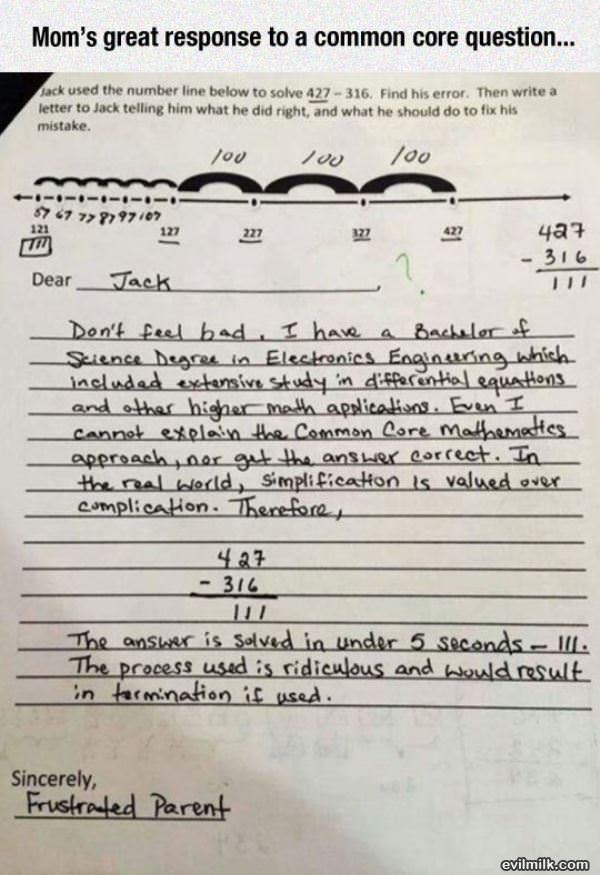 Mom's great response to a common core question...
Jack used the number line below to solve 427 - 316. Find his error. Then write a
letter to Jack telling him what he did right, and what he should do to fix his
mistake.
100 100 100
57 67 77 87 97 107
121 127 227 327 427
111
427
- 316
111
?
Dear Jack,
Don't feel bad. I have a Bachelor of
Science Degree in Electronics Engineering which
included extensive study in differential equations
and other higher math applications. Even I
cannot explain the Common Core Mathematics
approach, nor get the answer correct. In
the real world, simplification is valued over
complication. Therefore,
427
- 316
111
The answer is solved in under 5 seconds - 111.
The process used is ridiculous and would result
in termination if used.
Sincerely,
Frustrated Parent
evilmilk.com